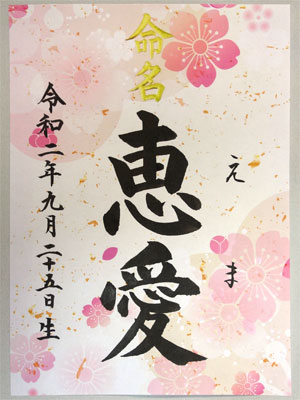 命名
えま
恵愛
令和二年九月二十五日生